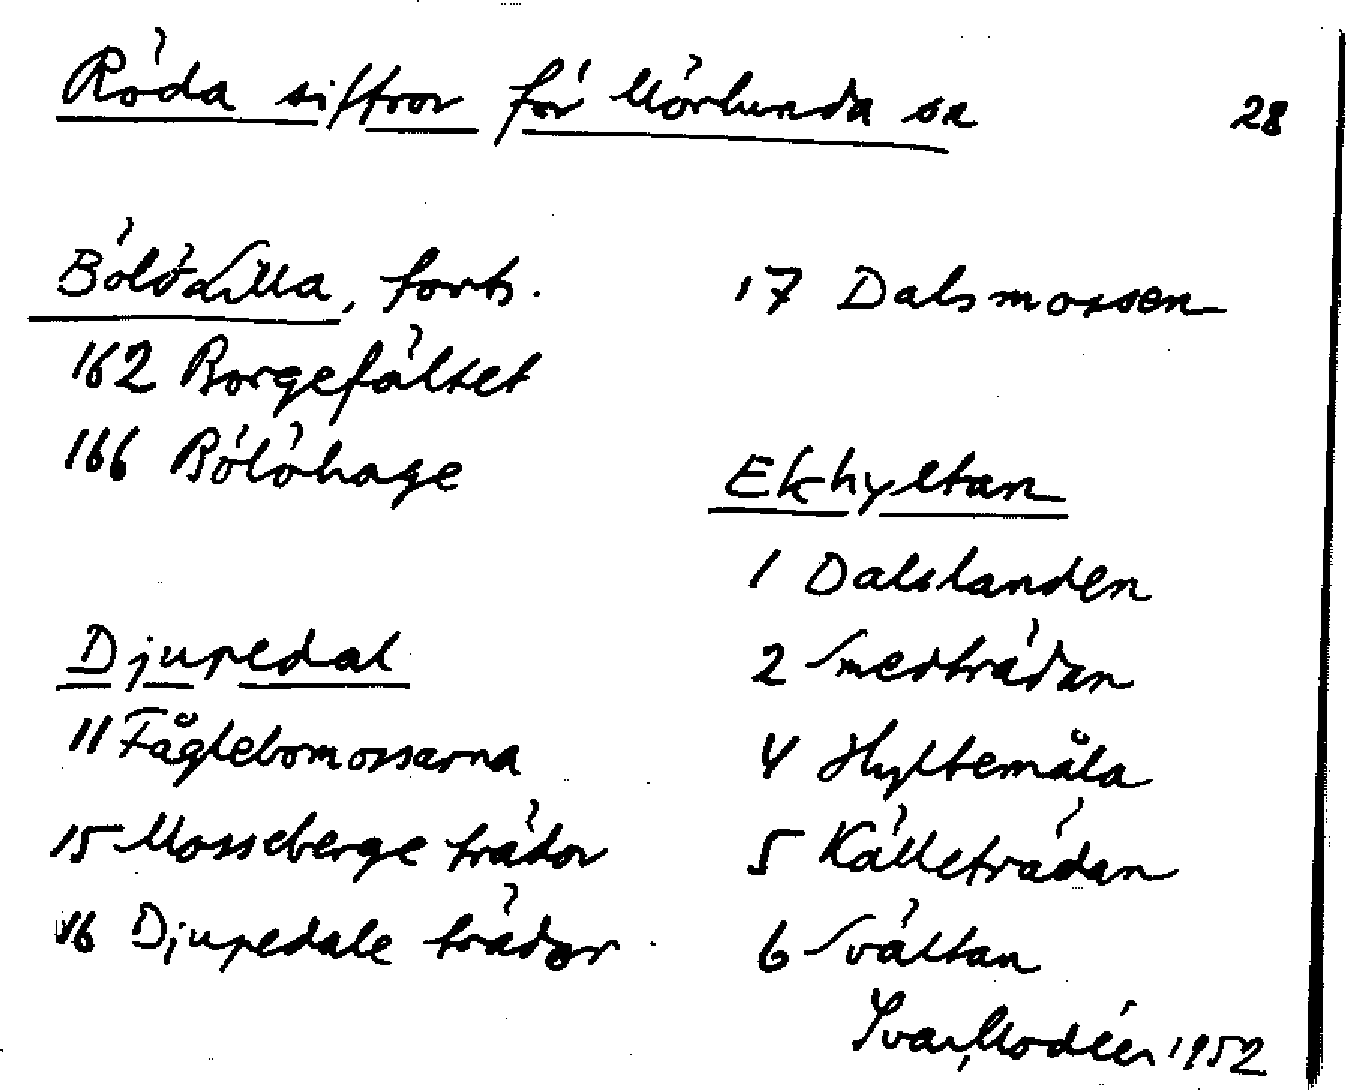 Röda siffror för Mörlunda sn
28
Bölö Lilla, forts.
162 Borgefältet
166 Bölöhage
Djupedal
11 Fåglebomossarna
15 Mosseberge trädor
16 Djupedale trädor
17 Dalsmossen
Ekhyltan
1 Dalslanden
2 Smedträdan
4 Hyltemåla
5 Källeträdan
6 Svältan
Ivar Modéer 1952